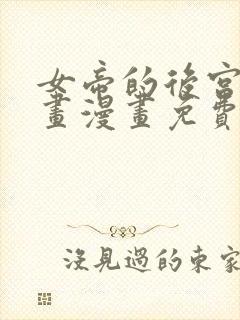 女帝的後宮
畫漫畫免費
沒見過的東家